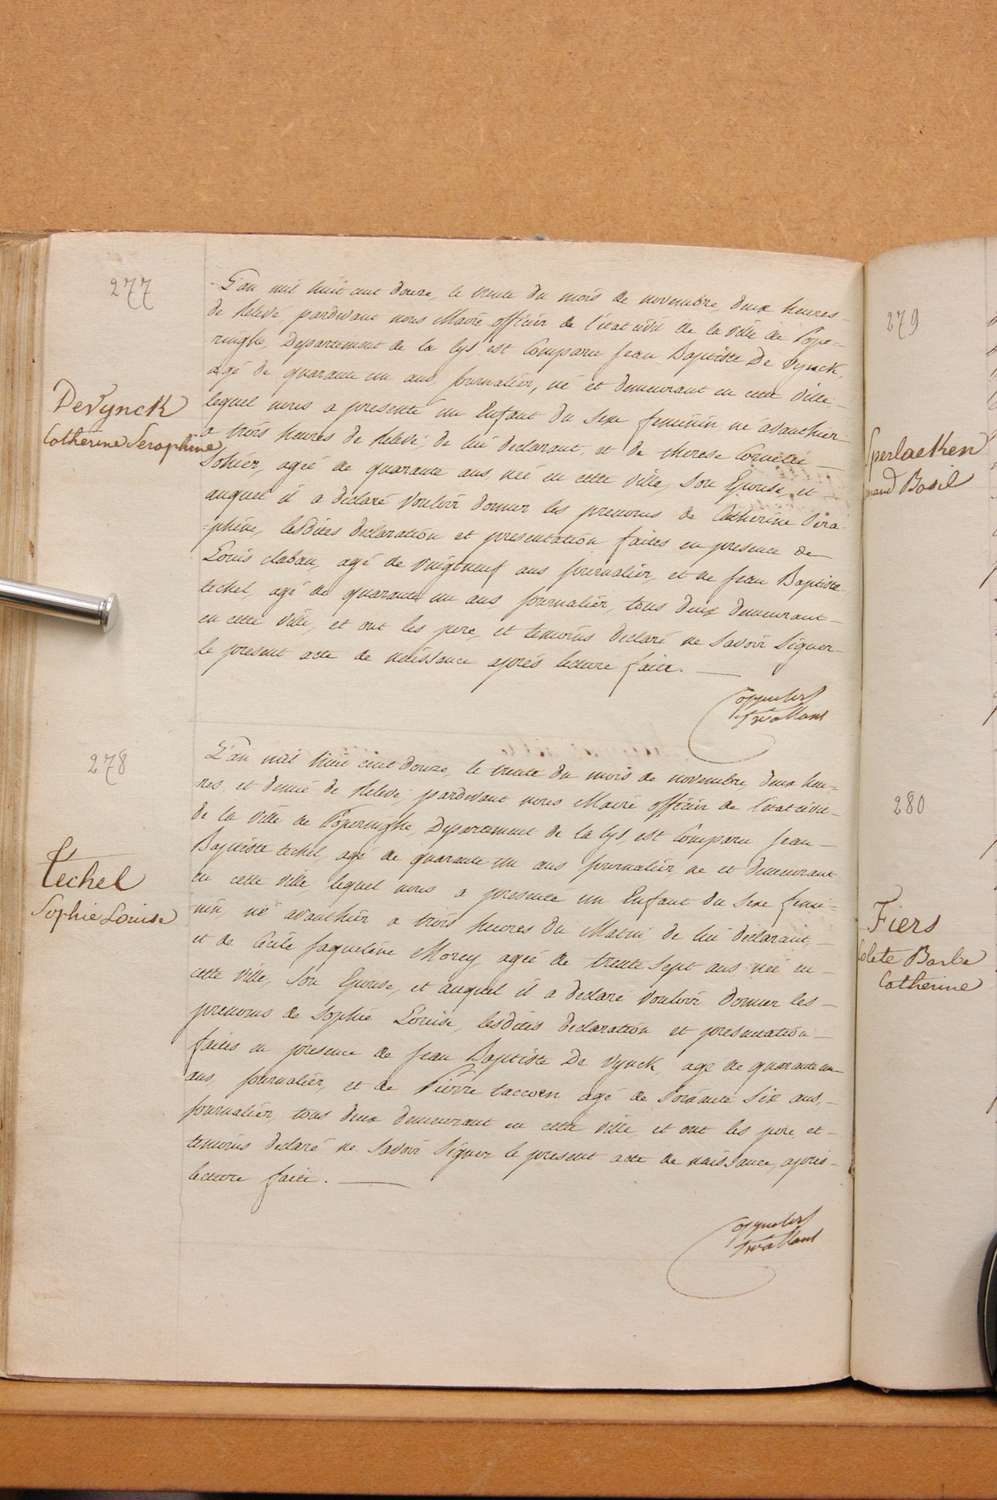 277
DeVynck
Catherine Seraphine
L'an mil huit cent douze, le trente du mois de novembre, deux heures
de Relevé pardevant nous Maire officier de l'état civil de la ville de Pope-
ringhe, Departement de la Lys, est Comparu Jean Baptiste De Vynck,
agé de quarante un ans, Journalier, né et demeurant en cette ville
lequel nous a presenté un Enfant du Sexe feminin, né avanthier
a trois heures de Relevé de lui declarant, et de therese Cornelie
Sohier, agée de quarante ans, née en cette ville, Son Epouse, et
auquel il a declaré Vouloir donner les prenoms de Catherine Séra-
phine, lesdites declaration et presentation faites en presence de
Louis claban, agé de vingtneuf ans Journalier, et de Jean Baptiste
techel, agé de quarante un ans Journalier, tous deux demeurant
en cette ville, et ont les pere, et temoins declaré ne Savoir Signer
le present acte de naissance après lecture faite.
278
Techel
Sophie Louise
L'an mil huit cent douze, le trente du mois de novembre deux heu-
res, et demie de Relevé pardevant nous Maire officier de l'état civil
de la ville de Poperinghe, Departement de la Lys, est Comparu Jean
Baptiste techel, agé de quarante un ans Journalier né et demeurant
en cette ville, lequel nous a presenté un Enfant du Sexe femi-
nin, né avanthier a trois heures du Matin de lui déclarant,
et de Cécile Jaqueline Morey agée de trente Sept ans née en
cette ville, Son Epouse, et auquel il a declaré Vouloir donner les
prenoms de Sophie Louise, lesdites declaration et presentation
faites en presence de Jean Baptiste De Vynck, agé de quarante un
ans, Journalier, et de Pierre taccoen agé de Soixante Six ans,
Journalier, tous deux demeurant en cette ville et ont les pere et
temoins declaré ne Savoir Signer le present acte de naissance, après
lecture faite.
279
Sperlaeken
Basil
280
Fiers
Barbe
Catherine